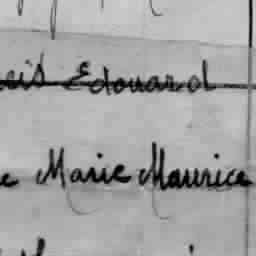 Edouard
Marie Maurice